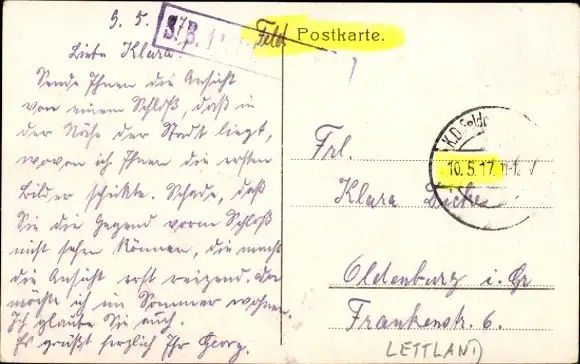 9. 5. 17
S.B.
Feld Postkarte.
Liebe Klara!
Sende Ihnen die Ansicht
von einem Schloß, daß in
der Nähe der Stadt liegt,
wovon ich Ihnen die ersten
Bilder schickte. Schade, daß
Sie die Gegend vorm Schloß
nicht sehen können, die macht
die Ansicht erst reizend. Da
möchte ich im Sommer wohnen.
Ich glaube Sie auch.
Es grüßt herzlich Ihr Georg.
K.D.Feldp
10.5.17. 11-12
Frl.
Klara
Oldenburg i. Gr
Frankenstr. 6.
LETTLAND